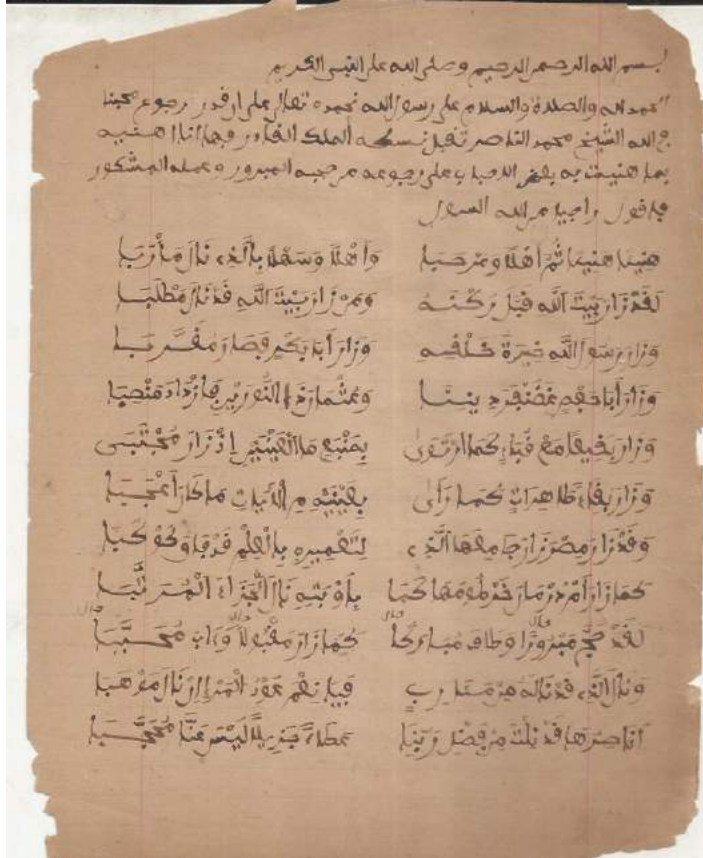 بسم الله الرحمن الرحيم وصلى الله على النبي الكريم
الحمد لله والصلاة والسلام على رسول الله نحمده تعالى على ان قدر رجوع محبنا
في الله الشيخ محمد الناصر تقبل نسكه الملك القادر فها أنا أهنيه
بما هنيت به بعض الاحباب على رجوعه من حجه المبرور وعمله المشكور
فأقول راجيا من الله السول
هنيئا هنيئا ثم أهلا ومرحبا وأهلا وسهلا بالذي نال مأربا
لقد زار بيت الله قبل ركنه ومن زار بيت الله قد نال مطلبا
وزار رسول الله خيرة خلقه وزار أبا بكر فصار مقربا
وزار أبا حفص غضنفر ديننا وعثمان ذا النورين فازداد منصبا
وزار بقيعا مع قباء كما ارتوى بمنبع ماء العين إذ زار مجتبى
وزار بقاء طاهرات كما رأى بعينيه من الآيات ما كان أعجبا
وقد زار مصر زار جامعها الذي لتعميره بالعلم قد فاق كوكبا
كما زار أم درمان خرطومها كما بأوبته نال الجزاء المرتبا
لقد حج مبرورا وطاف مباركا كما زار مقبولا وآب محببا
ونال الذي قد ناله من منا رب فيا نعم عود المرء إن نال موهبا
أناصرها قد نلت من فضل ربنا عطاء جزيلا ليس عنا محجبا